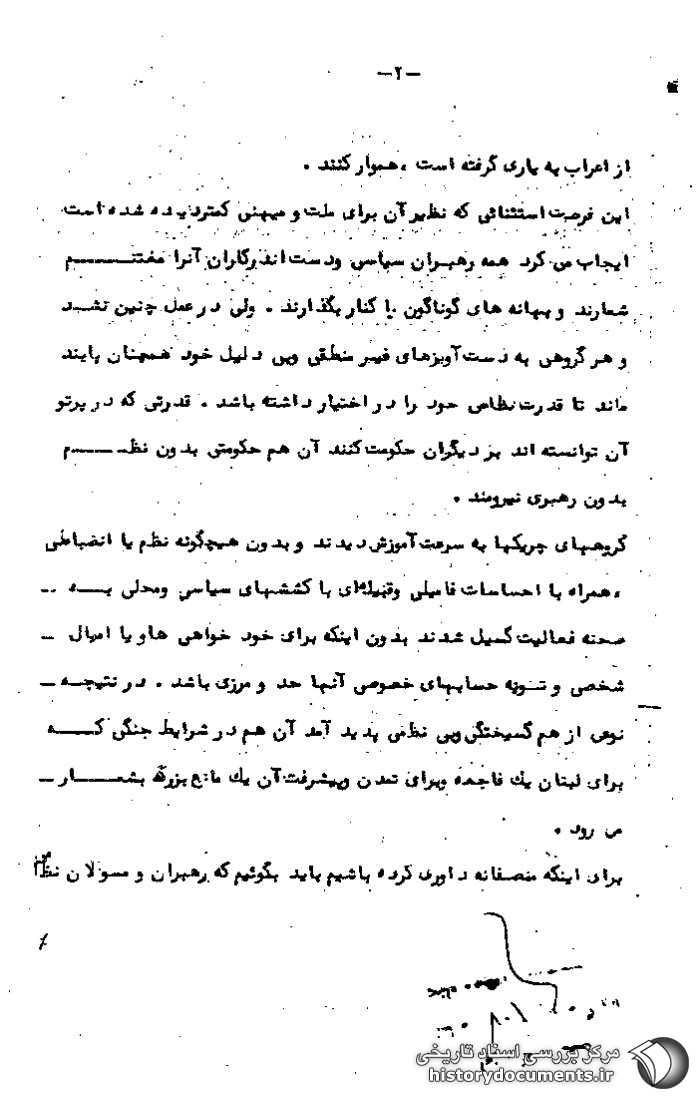 -۲-
از اعراب به یاری گرفته است ، هموار کنند .
این فرصت استثنائی که نظیر آن برای ملت و میهنی کمتر دیده شده است
ایجاب می کرد همه رهبران سیاسی ودست اندرکاران آنرا مغتنـــــم
شمارند و بهانه های گوناگون را کنار بگذارند . ولی در عمل چنین نشـد
و هر گروهی به دست آویزهای غیر منطقی وبی دلیل خود همچنان پایند
ماند تا قدرت نظامی خود را در اختیار داشته باشد . قدرتی که در پرتو
آن توانسته اند بر دیگران حکومت کنند آن هم حکومتی بدون نظــــم
بدون رهبری نیرومند .
گروههای چریکها به سرعت آموزش دیدند و بدون هیچگونه نظم یا انضباطی
، همراه با احساسات فامیلی وقبیله‌ای با کششهای سیاسی ومحلی بــه
صحنه فعالیت گسیل شدند بدون اینکه برای خود خواهی هاو یا امیال
شخصی و تسویه حسابهای خصوصی آنها حد و مرزی باشد . در نتیجــه
نوعی از هم گسیختگی وبی نظمی پدید آمد آن هم در شرایط جنگی کـــه
برای لبنان یك فاجعه وبرای تمدن وپیشرفت آن یك مانع بزرگ بشمـــار
می رود .
برای اینکه منصفانه داوری کرده باشیم باید بگوئیم که رهبران و مسولان نظامی
مرکز بررسی اسناد تاریخی
historydocuments.ir